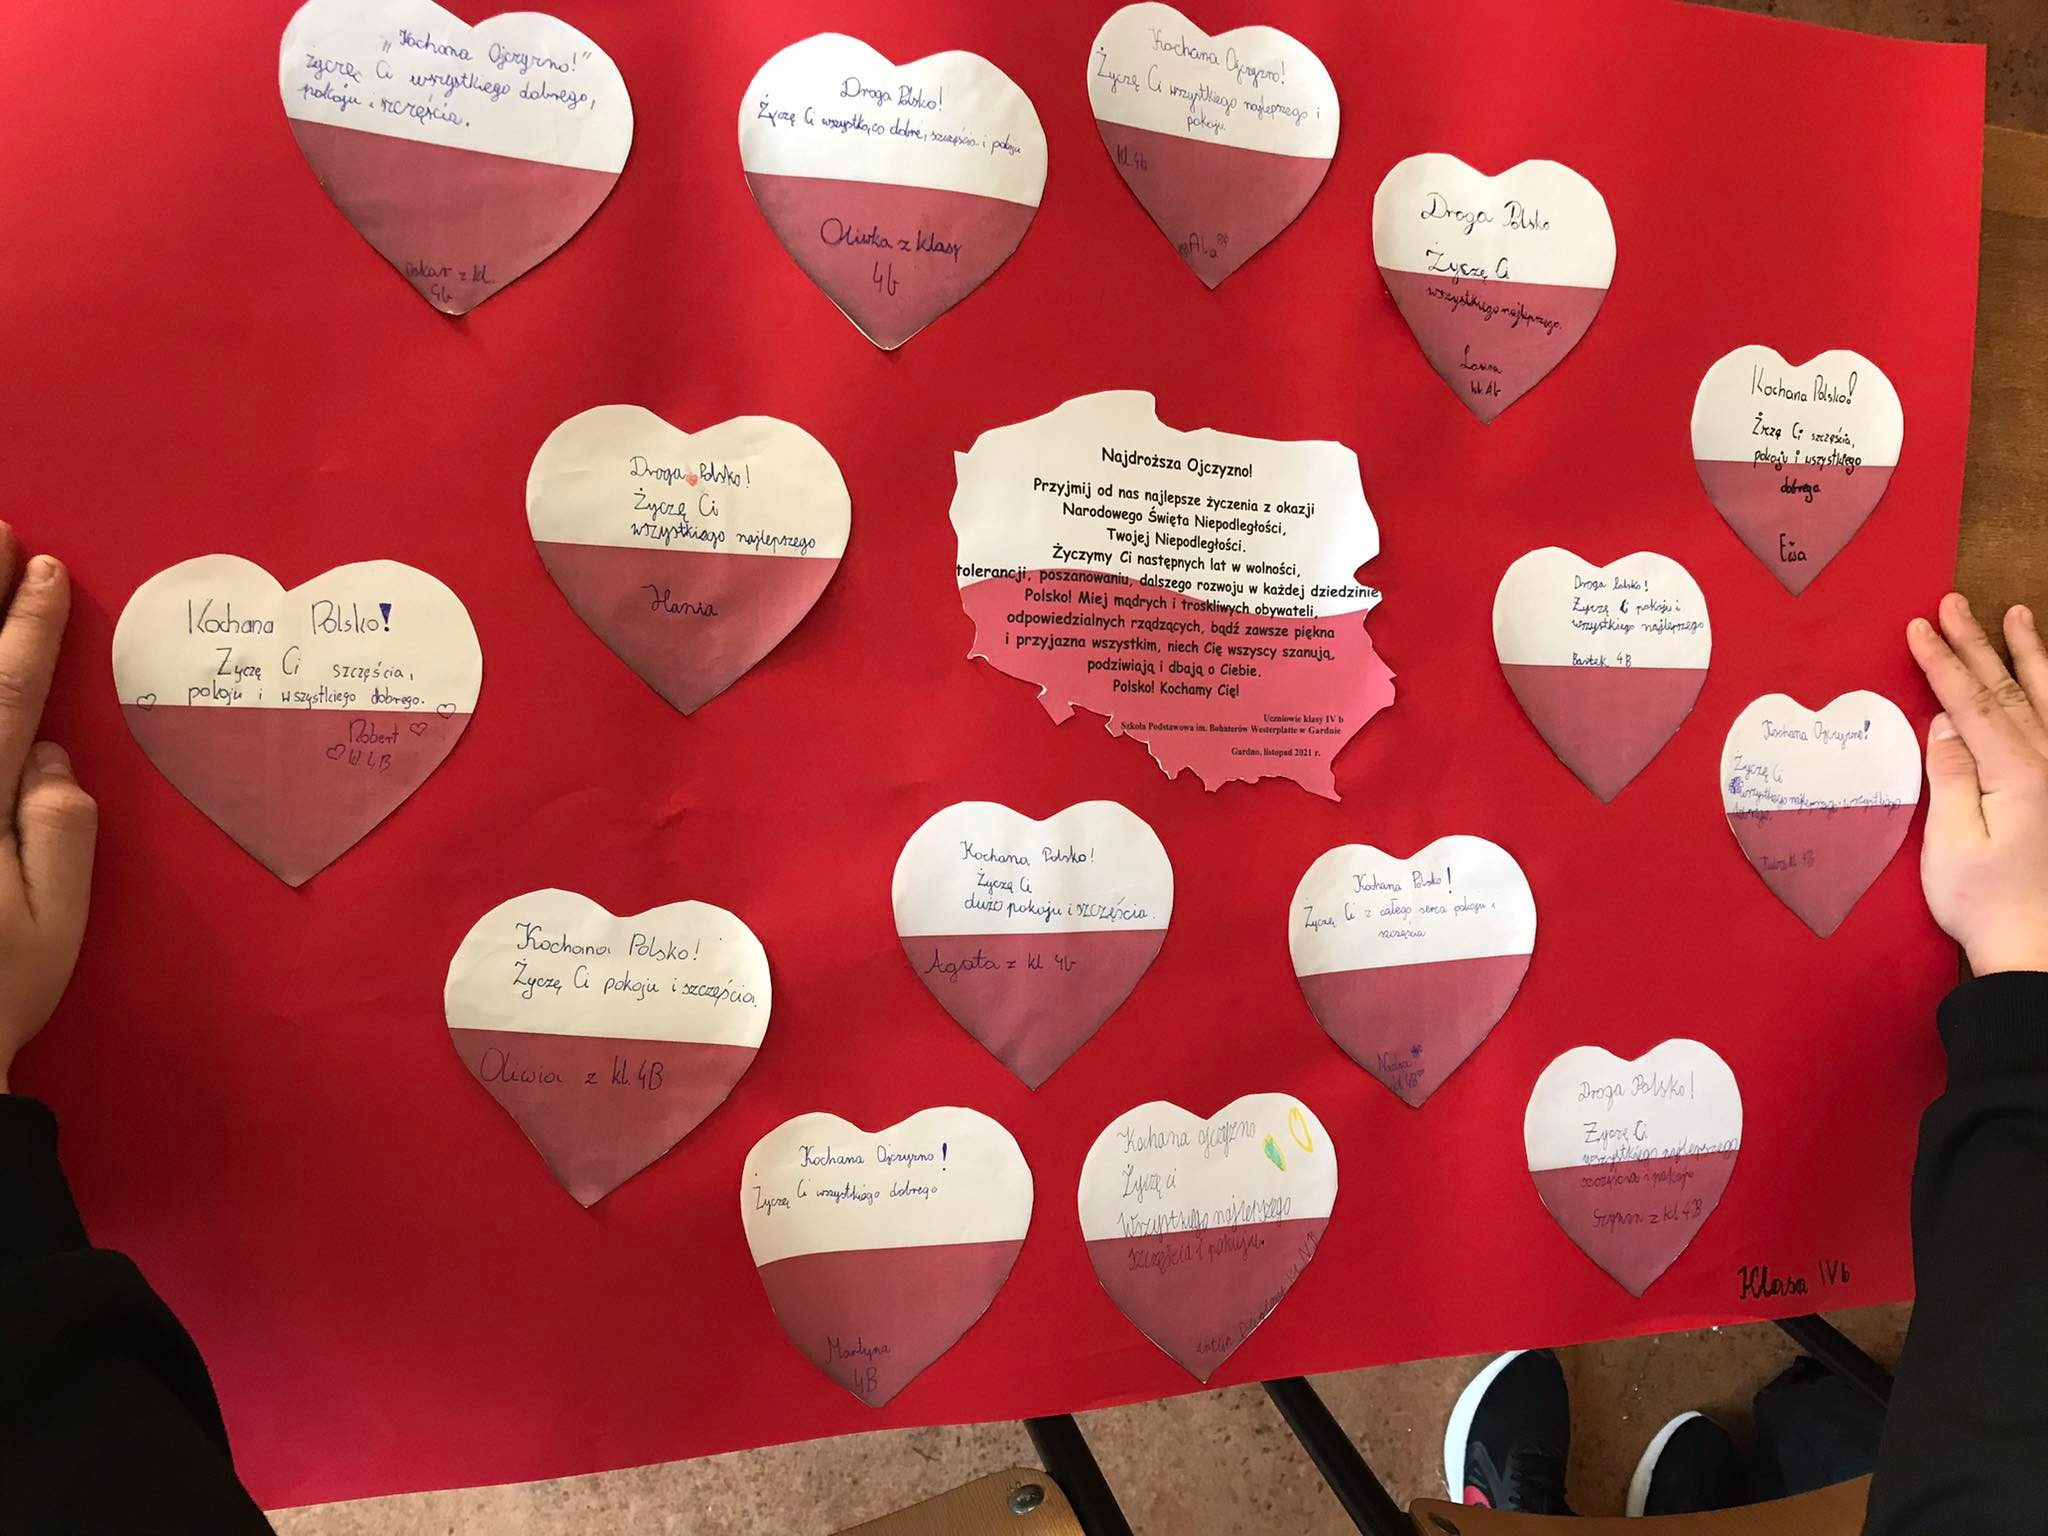 „Kochana Ojczyzno!"
życzę Ci wszystkiego dobrego,
pokoju i szczęścia.
Oskar z kl.
4b
Droga Polsko!
Życzę Ci wszystko, co dobre, szczęścia i pokoju
Oliwka z klasy
4b
Kochana Ojczyzno!
Życzę Ci wszystkiego najlepszego i
pokoju.
kl. 4b
Ala
Droga Polsko
Życzę Ci
wszystkiego najlepszego.
kl. 4b
Kochana Polsko!
Żrzę Ci szczęścia,
pokoju i wszystkiego
dobrego
Ewa
Droga Polsko!
Życzę Ci
wszystkiego najlepszego
Hania
Najdroższa Ojczyzno!
Przyjmij od nas najlepsze życzenia z okazji
Narodowego Święta Niepodległości,
Twojej Niepodległości.
Życzymy Ci następnych lat w wolności,
tolerancji, poszanowaniu, dalszego rozwoju w każdej dziedzinie
Polsko! Miej mądrych i troskliwych obywateli,
odpowiedzialnych rządzących, bądź zawsze piękna
i przyjazna wszystkim, niech Cię wszyscy szanują,
podziwiają i dbają o Ciebie.
Polsko! Kochamy Cię!
Uczniowie klasy IV b
Szkoła Podstawowa im. Bohaterów Westerplatte w Gardnie
Gardno, listopad 2021 r.
Droga Polsko!
Życzę Ci pokoju i
wszystkiego najlepszego
Bartek 4B
Kochana Polsko!
Zyczę Ci szczęścia,
pokoju i wszystkiego dobrego.
Robert
kl. 4B
Kochana Ojczyzno!
Życzę Ci
wszystkiego najlepszego i wszystkiego
dobrego.
kl. 4B
Kochana Polsko!
Życzę Ci
dużo pokoju i szczęścia.
Agata z kl. 4b
Kochana Polsko!
Życzę Ci z całego serca pokoju i
szczęścia
Nadia
kl. 4B
Kochana Polsko!
Życzę Ci pokoju i szczęścia.
Oliwia z kl. 4B
Kochana Ojczyzno!
Życzę Ci wszystkiego dobrego
Martyna
4B
Kochana ojczyzno
Życzę ci
Wszystkiego najlepszego
szczęścia i pokoju.
Droga Polsko!
Życzę Ci
wszystkiego najlepszego
szczęścia i pokoju
Szymon z kl 4B
Klasa IVb